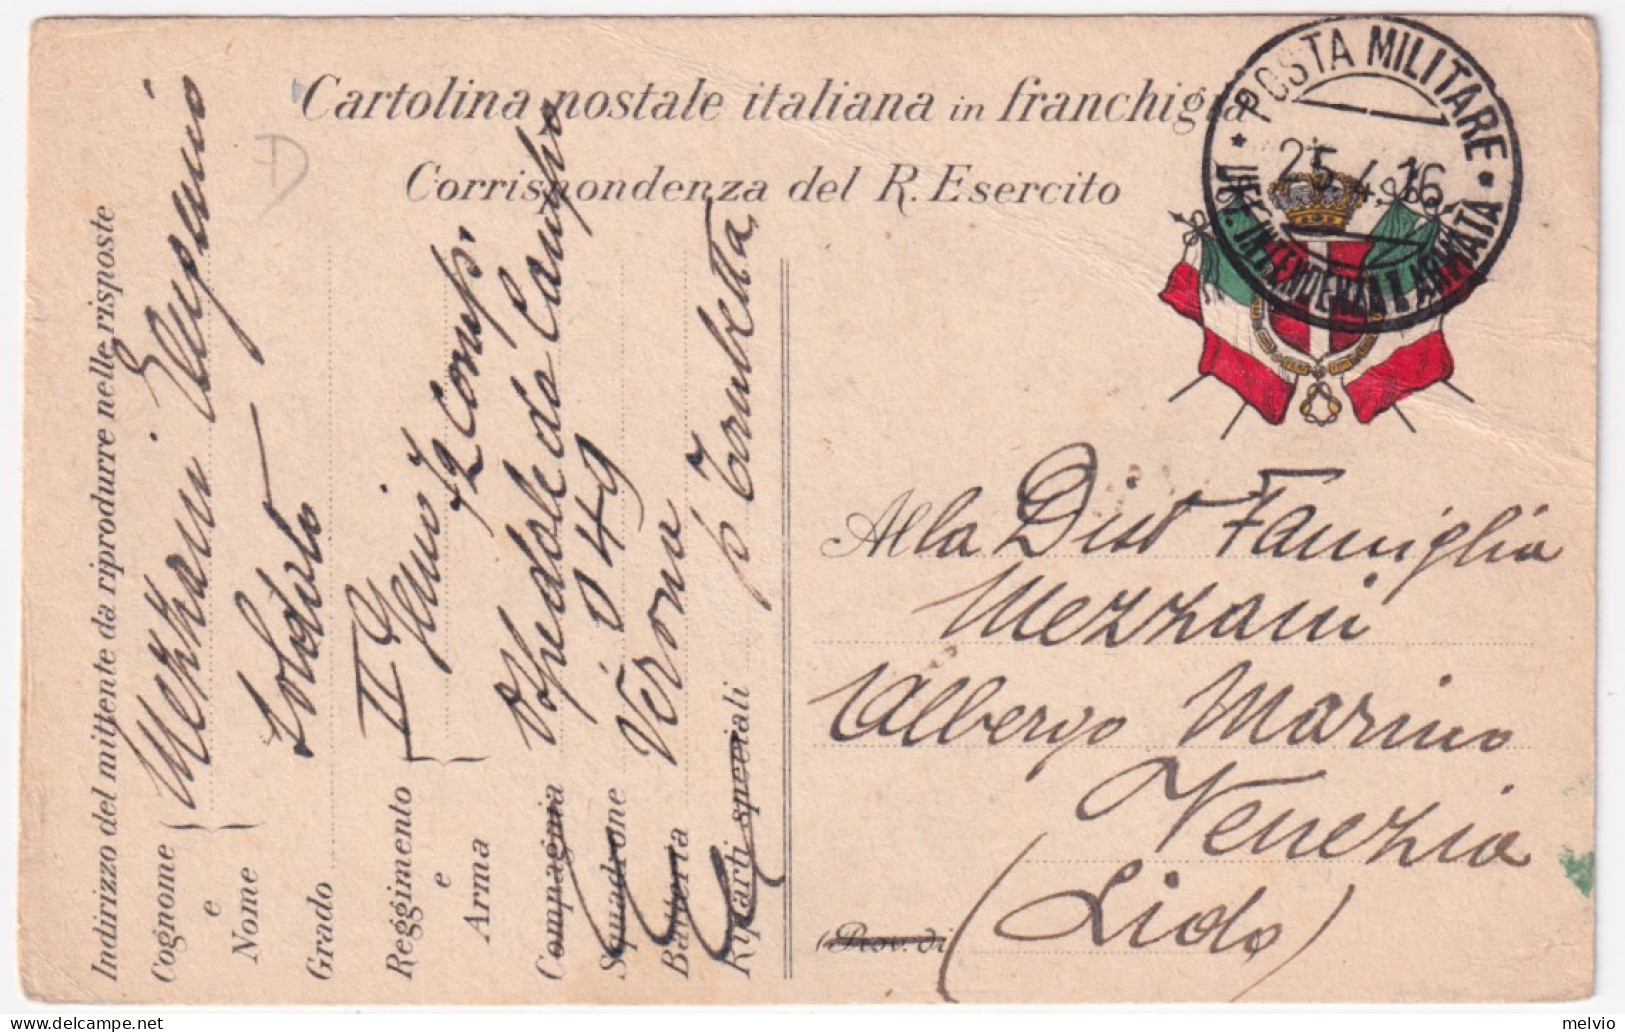 Cartolina postale italiana in franchigia
Corrispondenza del R. Esercito
POSTA MILITARE
25.4.16
INTENDENZA I ARMATA
Indirizzo del mittente da riprodurre nelle risposte
Cognome e Nome
Mezzani
Grado
Soldato
Reggimento e Arma
II Genio 72 Comp.
Compagnia
Ospedale da Campo
Squadrone
049
Batteria
Verona
Riparti speciali
p Tombetta
Alla Dist Famiglia
Mezzani
Albergo Marino
Venezia
(Prov. di
(Lido)
D
melvio